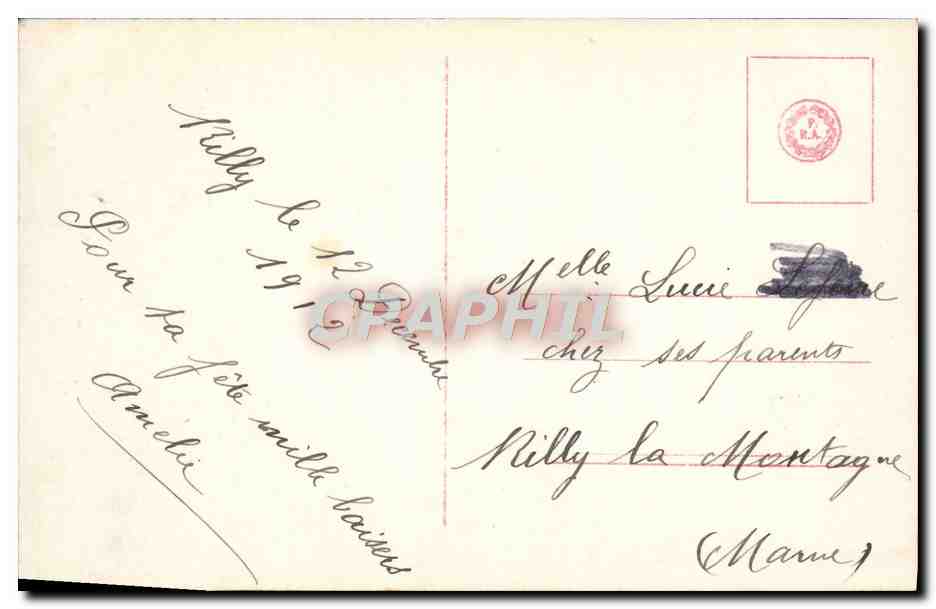 Rilly le 12 Décembre
1912
Pour ta fête mille baisers
Amélie
P.
R.A.
Melle Lucie
chez ses parents
Rilly la Montagne
(Marne)
CPAPHIL